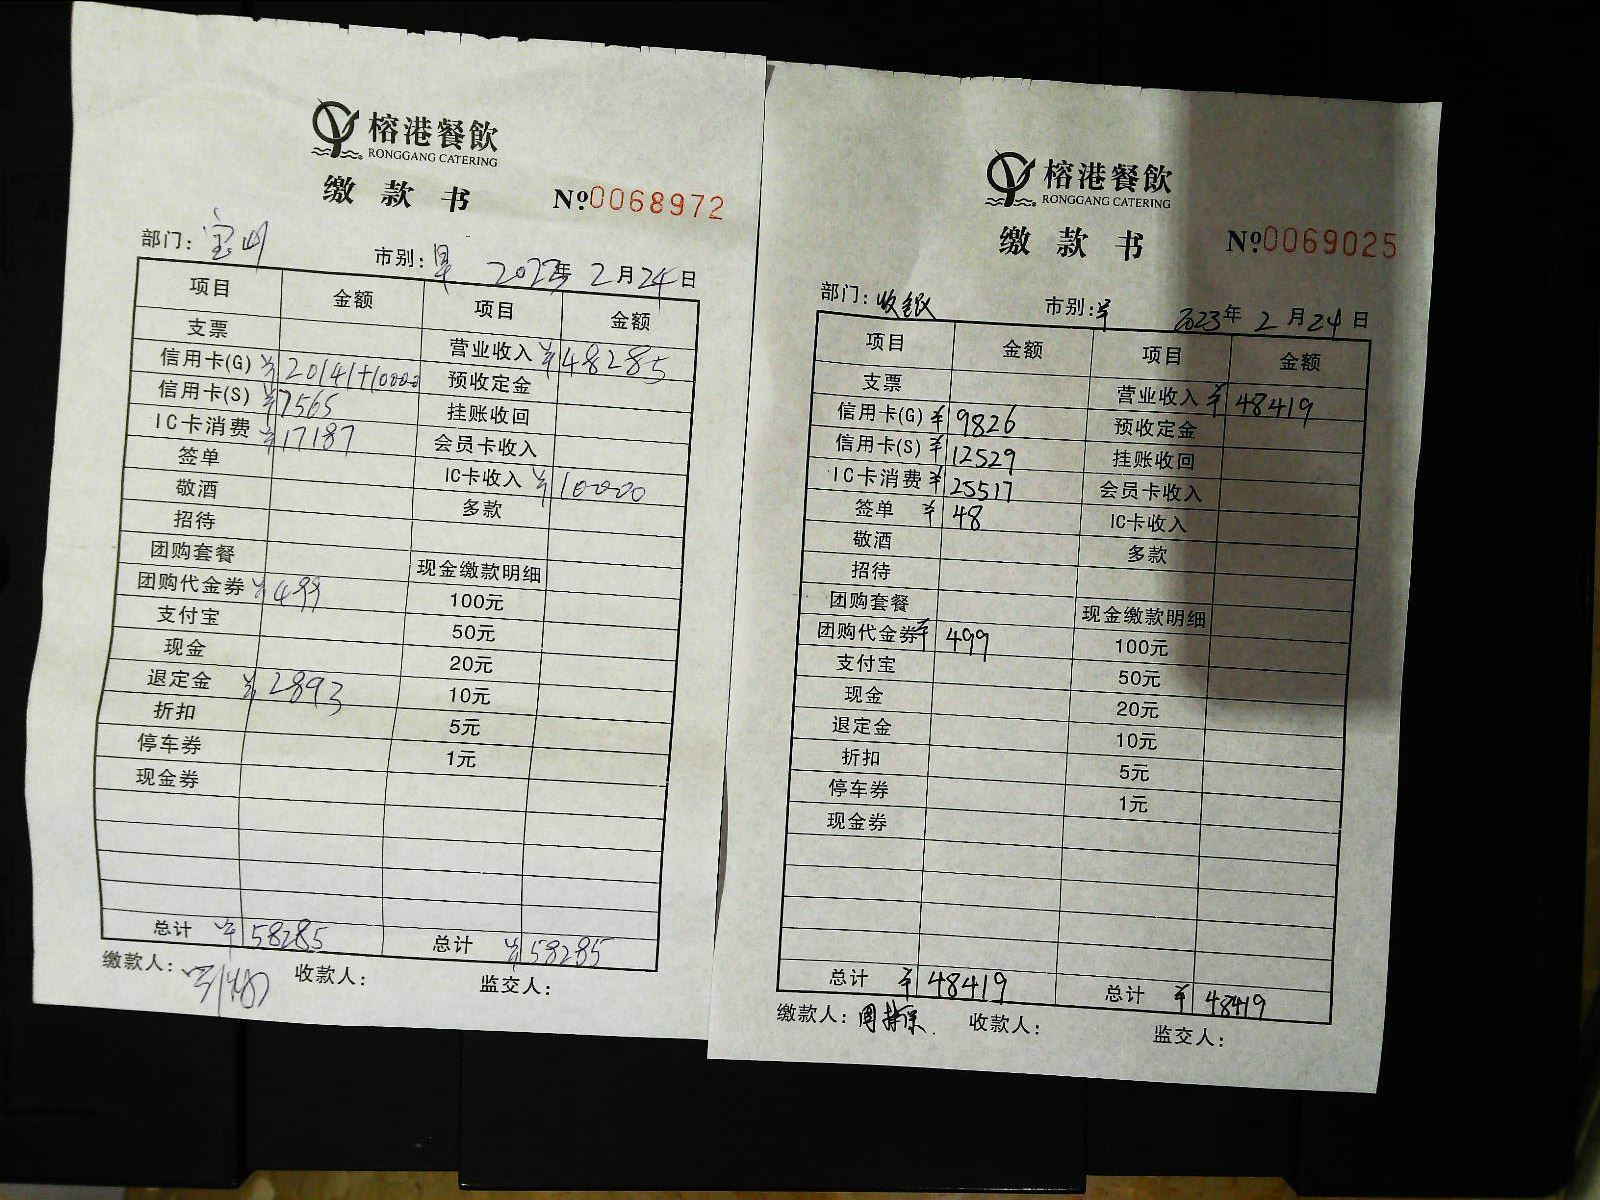 榕港餐飲
RONGGANG CATERING
缴款书 №0068972
部门: 宝山 市别: 早 2023年2月24日
项目 金额 项目 金额
支票 营业收入 ¥48285
信用卡(G) ¥20141+10000 预收定金
信用卡(S) ¥7565 挂账收回
IC卡消费 ¥17187 会员卡收入
签单 IC卡收入 ¥10000
敬酒 多款
招待
团购套餐 现金缴款明细
团购代金券 ¥499 100元
支付宝 50元
现金 20元
退定金 ¥2893 10元
折扣 5元
停车券 1元
现金券
总计 ¥58285 总计 ¥58285
缴款人: 收款人: 监交人:
榕港餐飲
RONGGANG CATERING
缴款书 №0069025
部门: 收银 市别: 早 2023年2月24日
项目 金额 项目 金额
支票 营业收入 ¥48419
信用卡(G) ¥9826 预收定金
信用卡(S) ¥12529 挂账收回
IC卡消费 ¥25517 会员卡收入
签单 ¥48 IC卡收入
敬酒 多款
招待
团购套餐 现金缴款明细
团购代金券 ¥499 100元
支付宝 50元
现金 20元
退定金 10元
折扣 5元
停车券 1元
现金券
总计 ¥48419 总计 ¥48419
缴款人: 收款人: 监交人: